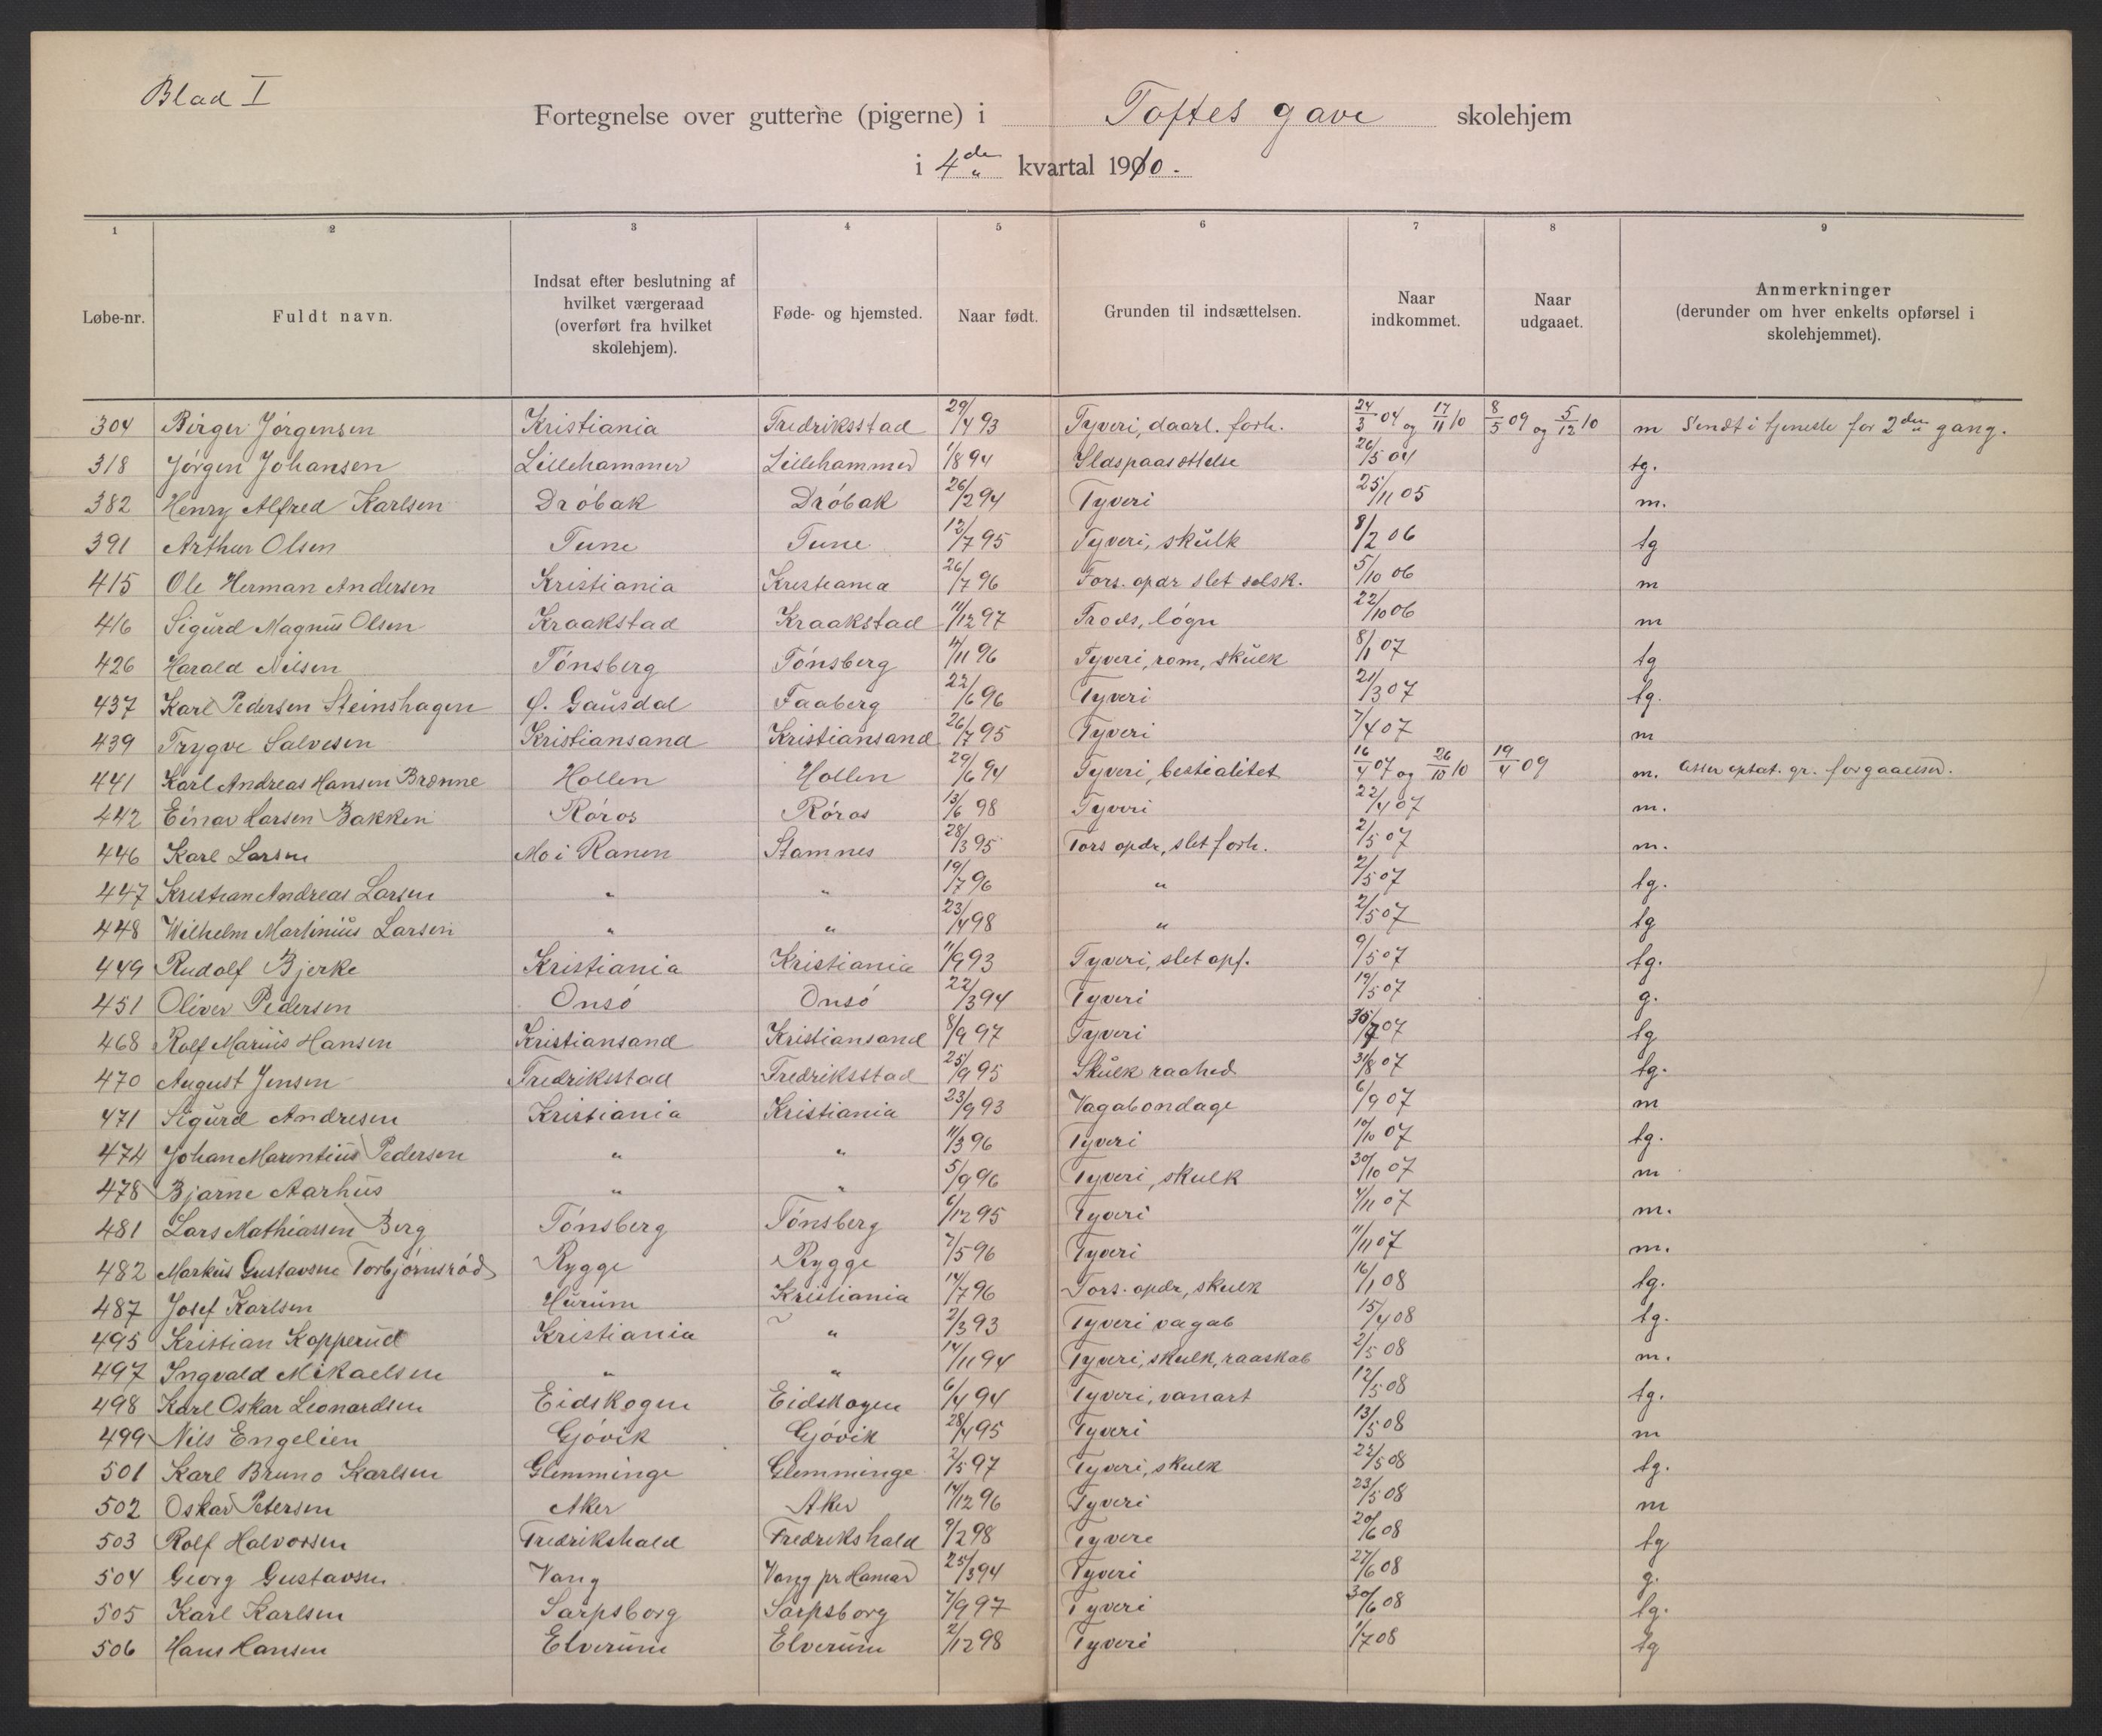 Blad I
Fortegnelse over gutterne (pigerne) i Toftes gave skolehjem
i 4de kvartal 1910.
1 2 3 4 5 6 7 8 9
Løbe-nr. Fuldt navn. Indsat efter beslutning af hvilket værgeraad (overført fra hvilket skolehjem). Føde- og hjemsted. Naar født. Grunden til indsættelsen. Naar indkommet. Naar udgaaet. Anmerkninger (derunder om hver enkelts opførsel i skolehjemmet).
304 Birger Jørgensen Kristiania Fredriksstad 29/4 93 Tyveri, daarl. forh. 24/3 04 og 17/11 10 8/5 09 og 5/12 10 m Sendt i tjeneste for 2den gang.
318 Jørgen Johansen Lillehammer Lillehammer 1/8 94 Ildspaasættelse 26/5 04 tg.
382 Henry Alfred Karlsen Drøbak Drøbak 26/2 94 Tyveri 25/11 05 m.
391 Arthur Olsen Tune Tune 12/7 95 Tyveri, skulk 8/2 06 tg
415 Ole Herman Andersen Kristiania Kristiania 26/7 96 Fors. opdr slet selsk. 5/10 06 m
416 Sigurd Magnus Olsen Kraakstad Kraakstad 11/12 97 Trods, løgn 22/10 06 m
426 Harald Nilsen Tønsberg Tønsberg 4/11 96 Tyveri, røm, skulk 8/1 07 tg
437 Karl Pedersen Steinshagen Ø. Gausdal Faaberg 22/6 96 Tyveri 21/3 07 tg.
439 Trygve Salvesen Kristiansand Kristiansand 26/7 95 Tyveri 7/4 07 m
441 Karl Andreas Hansen Brønne Hollen Hollen 29/6 94 Tyveri, bestialitet 16/4 07 og 26/10 10 19/4 09 m. gr. forgaaelser.
442 Einar Larsen Bakken Røros Røros 13/6 98 Tyveri 22/4 07 m.
446 Karl Larsen Mo i Ranen Stamnes 28/3 95 Fors opdr, slet forh. 2/5 07 m.
447 Kristian Andreas Larsen " " 19/7 96 " 2/5 07 tg.
448 Wilhelm Martinius Larsen " " 23/4 98 " 2/5 07 tg
449 Rudolf Bjerke Kristiania Kristiania 11/9 93 Tyveri, slet opf. 9/5 07 tg.
451 Oliver Pedersen Onsø Onsø 22/3 94 Tyveri 19/5 07 g.
468 Rolf Marius Hansen Kristiansand Kristiansand 8/9 97 Tyveri 30/7 07 tg
470 August Jensen Fredriksstad Fredriksstad 25/9 95 Skulk raahed 31/8 07 tg.
471 Sigurd Andresen Kristiania Kristiania 23/9 93 Vagabondage 6/9 07 m
474 Johan Marentius Pedersen " " 11/3 96 Tyveri 10/10 07 tg.
478 Bjarne Aarhus " " 5/9 96 Tyveri, skulk 30/10 07 m
481 Lars Mathiassen Berg Tønsberg Tønsberg 6/12 95 Tyveri 4/11 07 m.
482 Markus Gustavsen Torbjørnsrød Rygge Rygge 7/5 96 Tyveri 11/11 07 m.
487 Josef Karlsen Hurum Kristiania 14/7 96 Fors. opdr, skulk 16/1 08 tg.
495 Kristian Kopperud Kristiania " 2/3 93 Tyveri vagab 15/4 08 tg.
497 Ingvald Mikaelsen " " 14/11 94 Tyveri, skulk, raaskab 2/5 08 m.
498 Karl Oskar Leonardsen Eidskogen Eidskogen 6/4 94 Tyveri, vanart 12/5 08 tg.
499 Nils Engelien Gjøvik Gjøvik 28/4 95 Tyveri 13/5 08 m
501 Karl Bruno Karlsen Glemminge Glemminge 2/5 97 Tyveri, skulk 22/5 08 tg.
502 Oskar Petersen Aker Aker 14/12 96 Tyveri 23/5 08 m
503 Rolf Halvorsen Fredrikshald Fredrikshald 9/2 98 Tyveri 20/6 08 tg
504 Georg Gustavsen Vang Vang pr Hamar 25/3 94 Tyveri 27/6 08 g.
505 Karl Karlsen Sarpsborg Sarpsborg 7/9 97 Tyveri 30/6 08 tg.
506 Hans Hansen Elverum Elverum 2/12 98 Tyveri 1/7 08 tg